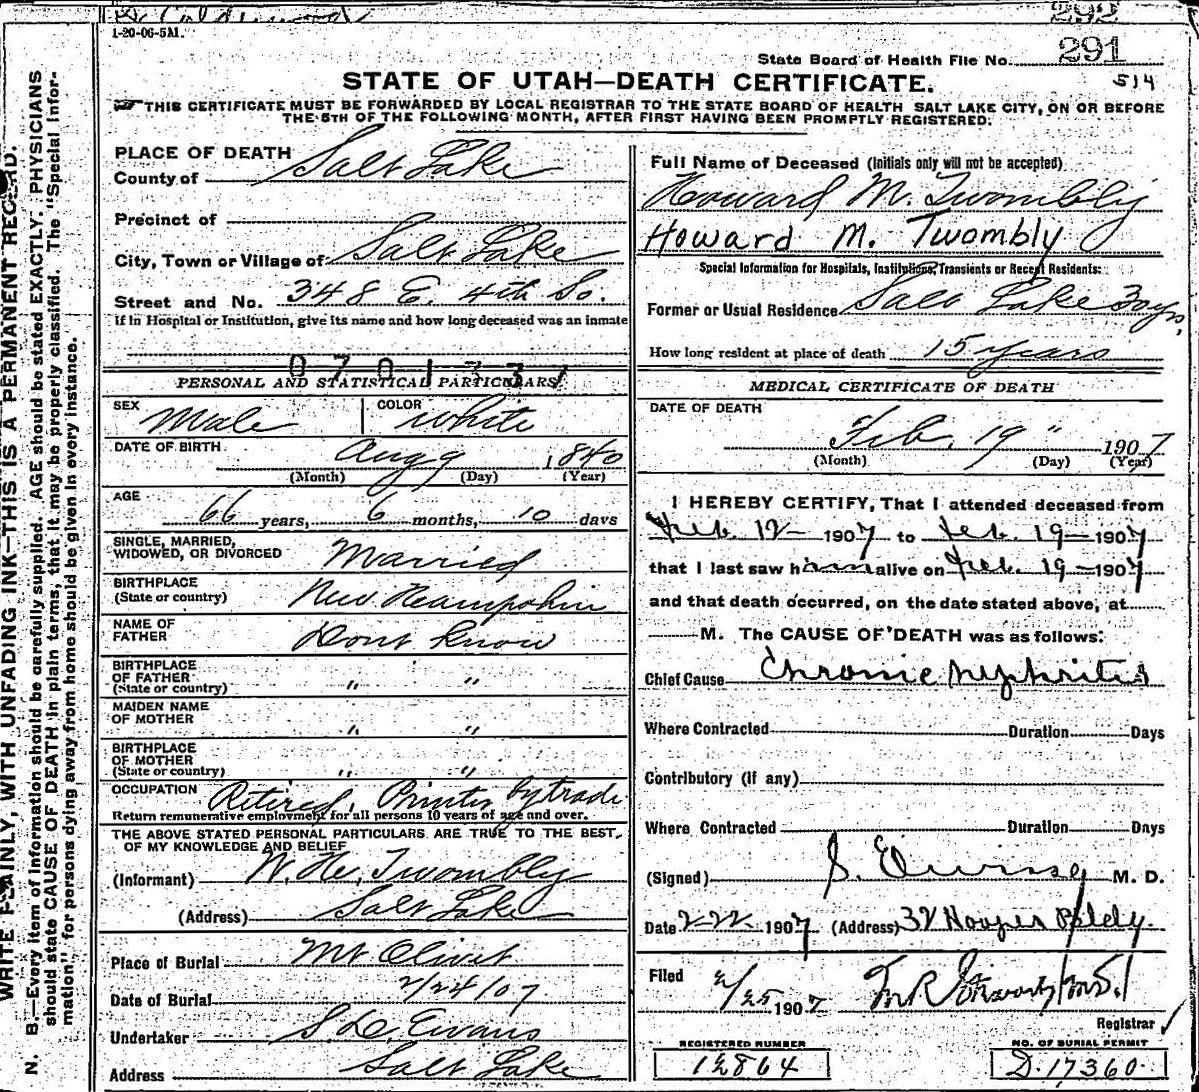 292
1-20-06-5M.
State Board of Health File No. 291
STATE OF UTAH—DEATH CERTIFICATE.
514
THIS CERTIFICATE MUST BE FORWARDED BY LOCAL REGISTRAR TO THE STATE BOARD OF HEALTH SALT LAKE CITY, ON OR BEFORE
THE 5TH OF THE FOLLOWING MONTH, AFTER FIRST HAVING BEEN PROMPTLY REGISTERED.
WRITE PLAINLY, WITH UNFADING INK—THIS IS A PERMANENT RECORD.
N. B.—Every item of information should be carefully supplied. AGE should be stated EXACTLY. PHYSICIANS
should state CAUSE OF DEATH in plain terms, that it may be properly classified. The "Special Infor-
mation" for persons dying away from home should be given in every instance.
PLACE OF DEATH
County of Salt Lake
Precinct of
City, Town or Village of Salt Lake
Street and No. 348 E. 4th So.
if in Hospital or Institution, give its name and how long deceased was an inmate
0701331
PERSONAL AND STATISTICAL PARTICULARS
SEX Male COLOR White
DATE OF BIRTH Aug 9 1840
(Month) (Day) (Year)
AGE
66 years, 6 months, 10 days
SINGLE, MARRIED,
WIDOWED, OR DIVORCED Married
BIRTHPLACE
(State or country) New Hampshire
NAME OF
FATHER Dont Know
BIRTHPLACE
OF FATHER
(State or country) " "
MAIDEN NAME
OF MOTHER " "
BIRTHPLACE
OF MOTHER
(State or country) " "
OCCUPATION Retired, Printer by trade
Return remunerative employment for all persons 10 years of age and over.
THE ABOVE STATED PERSONAL PARTICULARS ARE TRUE TO THE BEST
OF MY KNOWLEDGE AND BELIEF
(Informant) Twombly
(Address) Salt Lake
Place of Burial Mt Olivet
Date of Burial 2/24/07
Undertaker Evans
Address Salt Lake
Full Name of Deceased (Initials only will not be accepted)
Howard M. Twombly
Howard M. Twombly
Special Information for Hospitals, Institutions, Transients or Recent Residents:
Former or Usual Residence Salt Lake
How long resident at place of death 15 years
MEDICAL CERTIFICATE OF DEATH
DATE OF DEATH
Feb. 19" 1907
(Month) (Day) (Year)
I HEREBY CERTIFY, That I attended deceased from
Feb. 12— 1907 to Feb. 19— 1907
that I last saw him alive on Feb. 19— 1907
and that death occurred, on the date stated above, at
M. The CAUSE OF DEATH was as follows:
Chief Cause Chronic Nephritis
Where Contracted Duration Days
Contributory (if any)
Where Contracted Duration Days
(Signed) M. D.
Date 2-22 1907 (Address) 32 Hooper Bldg.
Filed 2/25 1907
Registrar
REGISTERED NUMBER
12864
NO. OF BURIAL PERMIT
D.17360.